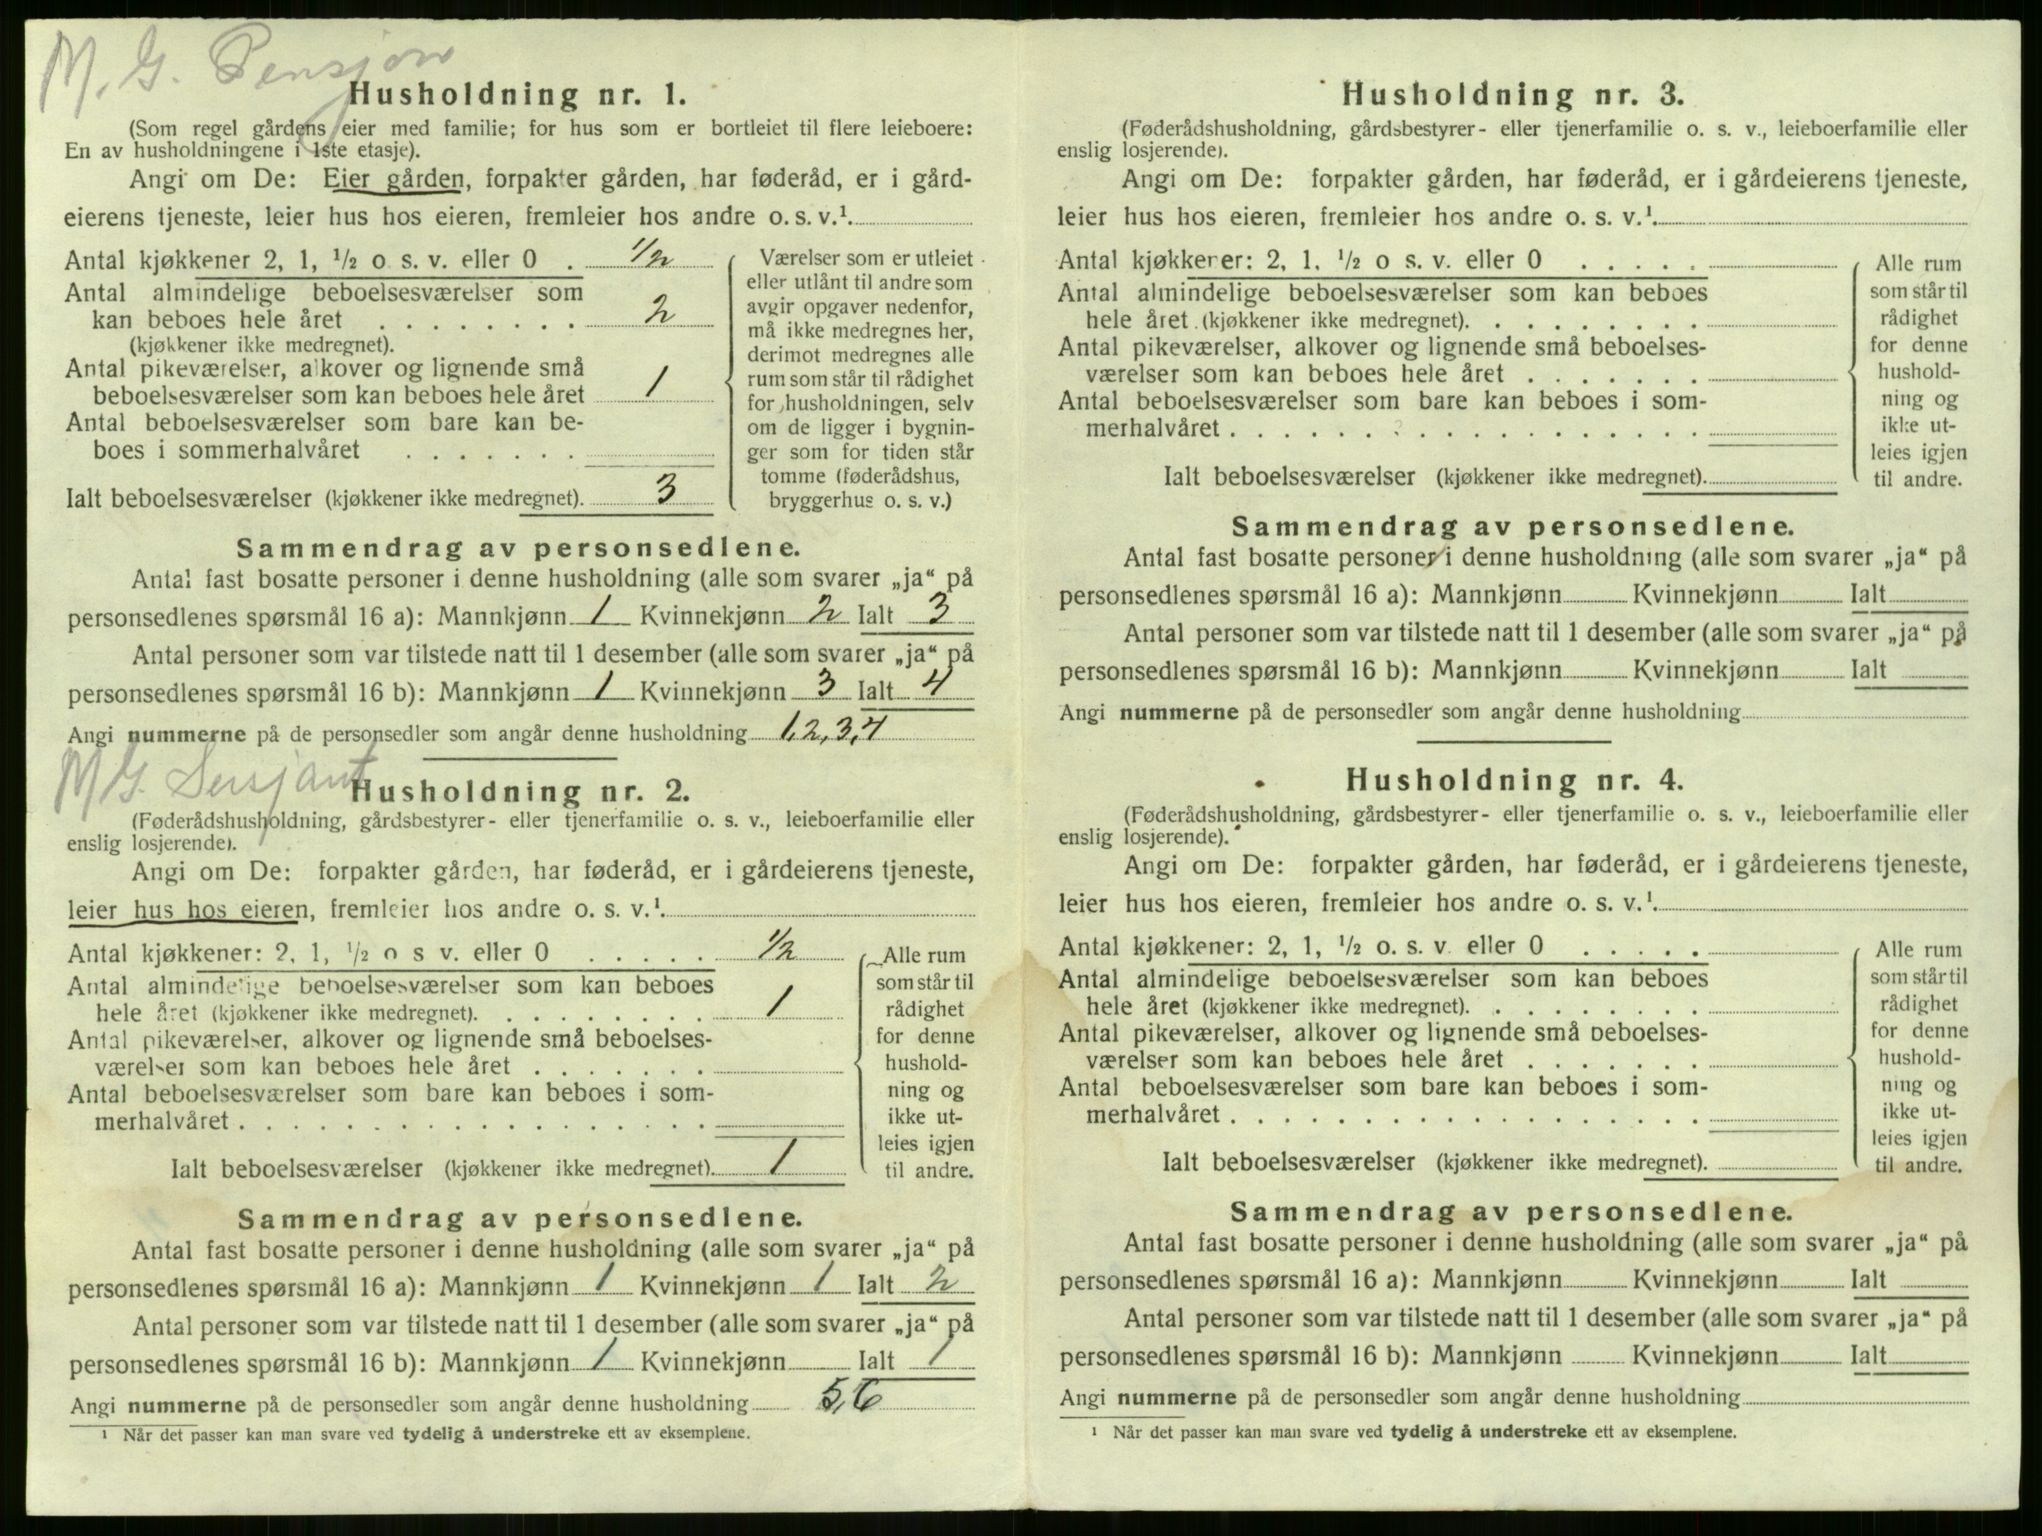 M. G. Pensjon
Husholdning nr. 1.
(Som regel gårdens eier med familie; for hus som er bortleiet til flere leieboere:
En av husholdningene i 1ste etasje).
Angi om De: Eier gården, forpakter gården, har føderåd, er i gård-
eierens tjeneste, leier hus hos eieren, fremleier hos andre o. s. v.¹
Antal kjøkkener 2, 1, ½ o s. v. eller 0 . ½
Antal almindelige beboelsesværelser som
kan beboes hele året . . . . . . . . 2
(kjøkkener ikke medregnet).
Antal pikeværelser, alkover og lignende små
beboelsesværelser som kan beboes hele året 1
Antal beboelsesværelser som bare kan be-
boes i sommerhalvåret . . . . . . .
Ialt beboelsesværelser (kjøkkener ikke medregnet). 3
Værelser som er utleiet
eller utlånt til andre som
avgir opgaver nedenfor,
må ikke medregnes her,
derimot medregnes alle
rum som står til rådighet
for husholdningen, selv
om de ligger i bygnin-
ger som for tiden står
tomme (føderådshus,
bryggerhus o. s. v.)
Sammendrag av personsedlene.
Antal fast bosatte personer i denne husholdning (alle som svarer „ja“ på
personsedlenes spørsmål 16 a): Mannkjønn 1 Kvinnekjønn 2 Ialt 3
Antal personer som var tilstede natt til 1 desember (alle som svarer „ja“ på
personsedlenes spørsmål 16 b): Mannkjønn 1 Kvinnekjønn 3 Ialt 4
Angi nummerne på de personsedler som angår denne husholdning 1, 2, 3, 4
M G. Sersjant
Husholdning nr. 2.
(Føderådshusholdning, gårdsbestyrer- eller tjenerfamilie o. s. v., leieboerfamilie eller
enslig losjerende).
Angi om De: forpakter gården, har føderåd, er i gårdeierens tjeneste,
leier hus hos eieren, fremleier hos andre o. s. v.¹
Antal kjøkkener: 2, 1, ½ o s v. eller 0 . . . . . ½
Antal almindelige beboelsesværelser som kan beboes
hele året (kjøkkener ikke medregnet). . . . . . . . . 1
Antal pikeværelser, alkover og lignende små beboelses-
værelser som kan beboes hele året . . . . . . .
Antal beboelsesværelser som bare kan beboes i som-
merhalvåret . . . . . . . . . . . . . . . . . .
Ialt beboelsesværelser (kjøkkener ikke medregnet). 1
Alle rum
som står til
rådighet
for denne
hushold-
ning og
ikke ut-
leies igjen
til andre.
Sammendrag av personsedlene.
Antal fast bosatte personer i denne husholdning (alle som svarer „ja“ på
personsedlenes spørsmål 16 a): Mannkjønn 1 Kvinnekjønn 1 Ialt 2
Antal personer som var tilstede natt til 1 desember (alle som svarer „ja“ på
personsedlenes spørsmål 16 b): Mannkjønn 1 Kvinnekjønn Ialt 1
Angi nummerne på de personsedler som angår denne husholdning 5, 6
¹ Når det passer kan man svare ved tydelig å understreke ett av eksemplene.
Husholdning nr. 3.
(Føderådshusholdning, gårdsbestyrer- eller tjenerfamilie o. s. v., leieboerfamilie eller
enslig losjerende).
Angi om De: forpakter gården, har føderåd, er i gårdeierens tjeneste,
leier hus hos eieren, fremleier hos andre o. s. v.¹
Antal kjøkkener: 2, 1, ½ o s. v. eller 0 . . . . .
Antal almindelige beboelsesværelser som kan beboes
hele året (kjøkkener ikke medregnet). . . . . . . . .
Antal pikeværelser, alkover og lignende små beboelses-
værelser som kan beboes hele året . . . . . . .
Antal beboelsesværelser som bare kan beboes i som-
merhalvåret . . . . . . . . . . . . . . . . . .
Ialt beboelsesværelser (kjøkkener ikke medregnet).
Alle rum
som står til
rådighet
for denne
hushold-
ning og
ikke ut-
leies igjen
til andre.
Sammendrag av personsedlene.
Antal fast bosatte personer i denne husholdning (alle som svarer „ja“ på
personsedlenes spørsmål 16 a): Mannkjønn Kvinnekjønn Ialt
Antal personer som var tilstede natt til 1 desember (alle som svarer „ja“ på
personsedlenes spørsmål 16 b): Mannkjønn Kvinnekjønn Ialt
Angi nummerne på de personsedler som angår denne husholdning
Husholdning nr. 4.
(Føderådshusholdning, gårdsbestyrer- eller tjenerfamilie o. s. v., leieboerfamilie eller
enslig losjerende).
Angi om De: forpakter gården, har føderåd, er i gårdeierens tjeneste,
leier hus hos eieren, fremleier hos andre o. s. v.¹
Antal kjøkkener: 2, 1, ½ o. s. v. eller 0 . . . . .
Antal almindelige beboelsesværelser som kan beboes
hele året (kjøkkener ikke medregnet). . . . . . . . .
Antal pikeværelser, alkover og lignende små beboelses-
værelser som kan beboes hele året . . . . . . .
Antal beboelsesværelser som bare kan beboes i som-
merhalvåret . . . . . . . . . . . . . . . . . .
Ialt beboelsesværelser (kjøkkener ikke medregnet).
Alle rum
som står til
rådighet
for denne
hushold-
ning og
ikke ut-
leies igjen
til andre.
Sammendrag av personsedlene.
Antal fast bosatte personer i denne husholdning (alle som svarer „ja“ på
personsedlenes spørsmål 16 a): Mannkjønn Kvinnekjønn Ialt
Antal personer som var tilstede natt til 1 desember (alle som svarer „ja“ på
personsedlenes spørsmål 16 b): Mannkjønn Kvinnekjønn Ialt
Angi nummerne på de personsedler som angår denne husholdning
¹ Når det passer kan man svare ved tydelig å understreke ett av eksemplene.